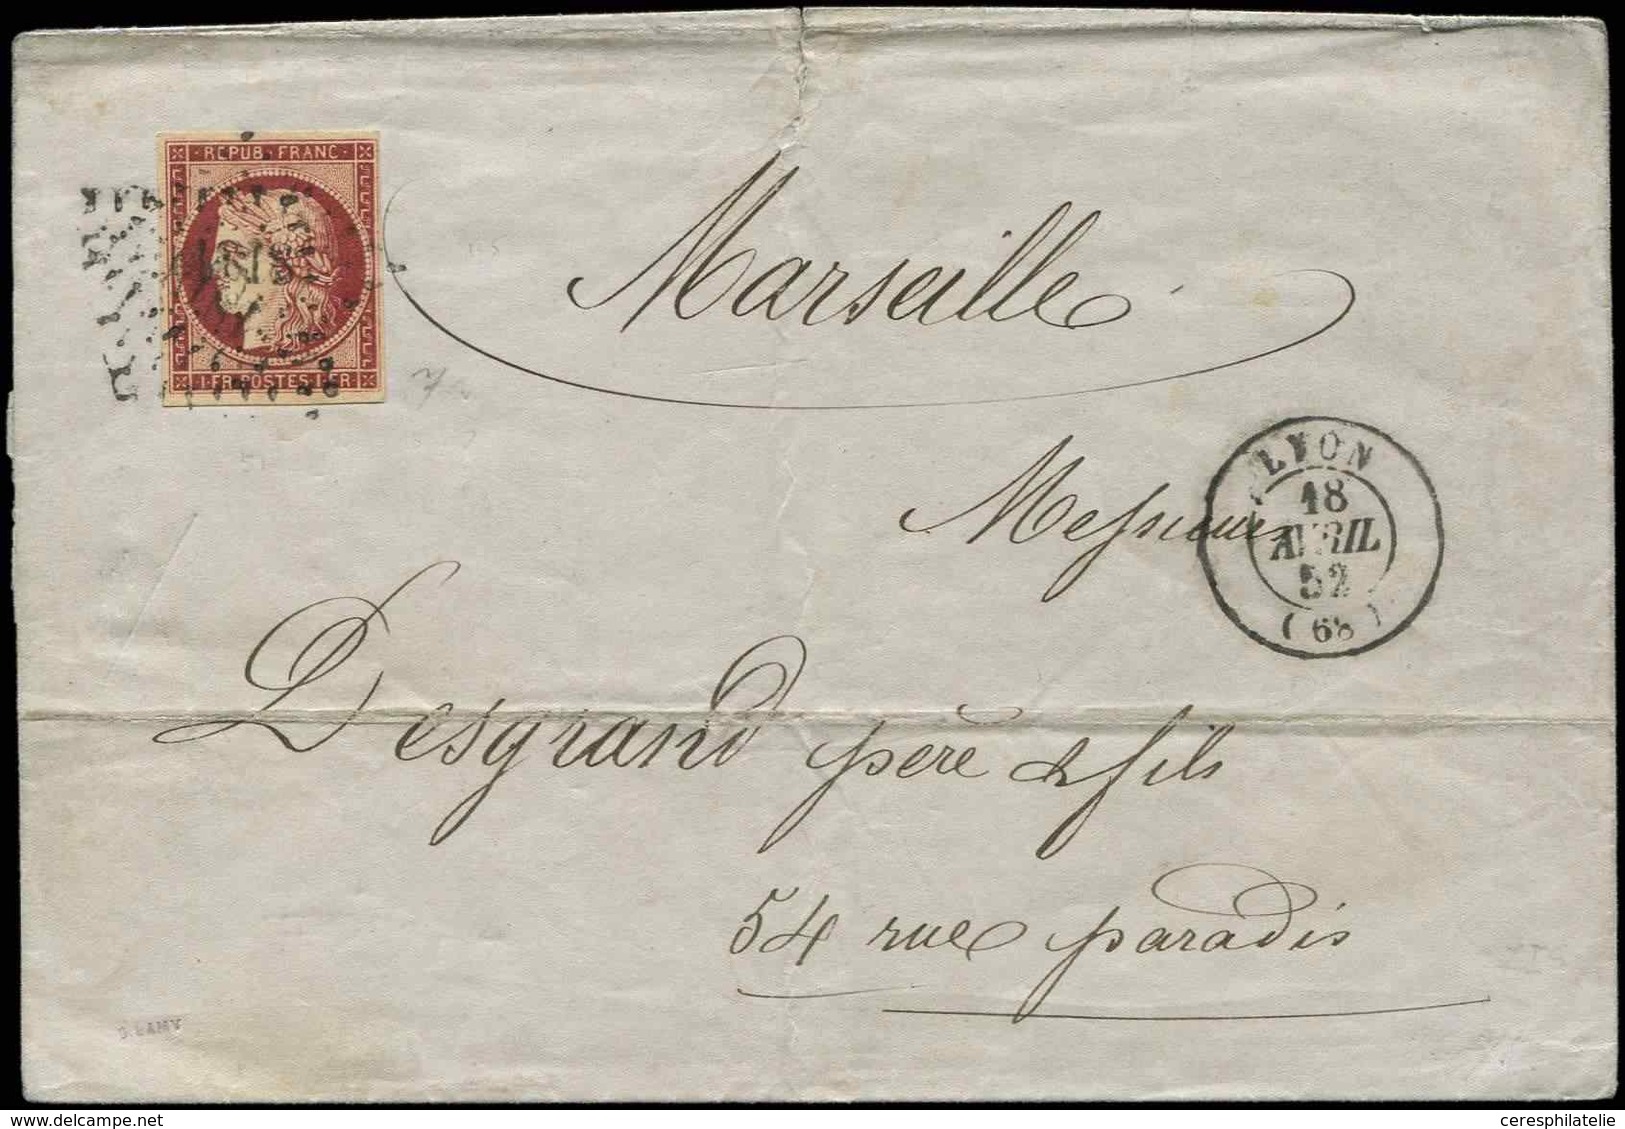 REPUB. FRANC
1·FR·POSTES·1·FR
Marseille
LYON
18
AVRIL
52
(68)
Messieurs
Desgrand père & fils
54 rue paradis
© DELCAMPE - LAMY
ceresphilatelie